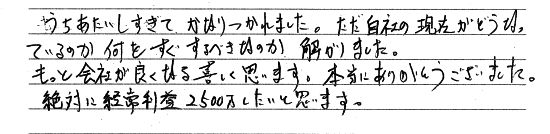 うちあたいしすぎてかなりつかれました。ただ自社の現在がどうなっ
ているのか何をすぐするべきなのか解かりました。
もっと会社が良くなる喜しく思います。本当にありがとうございました。
絶対に経常利益2500万したいと思います。